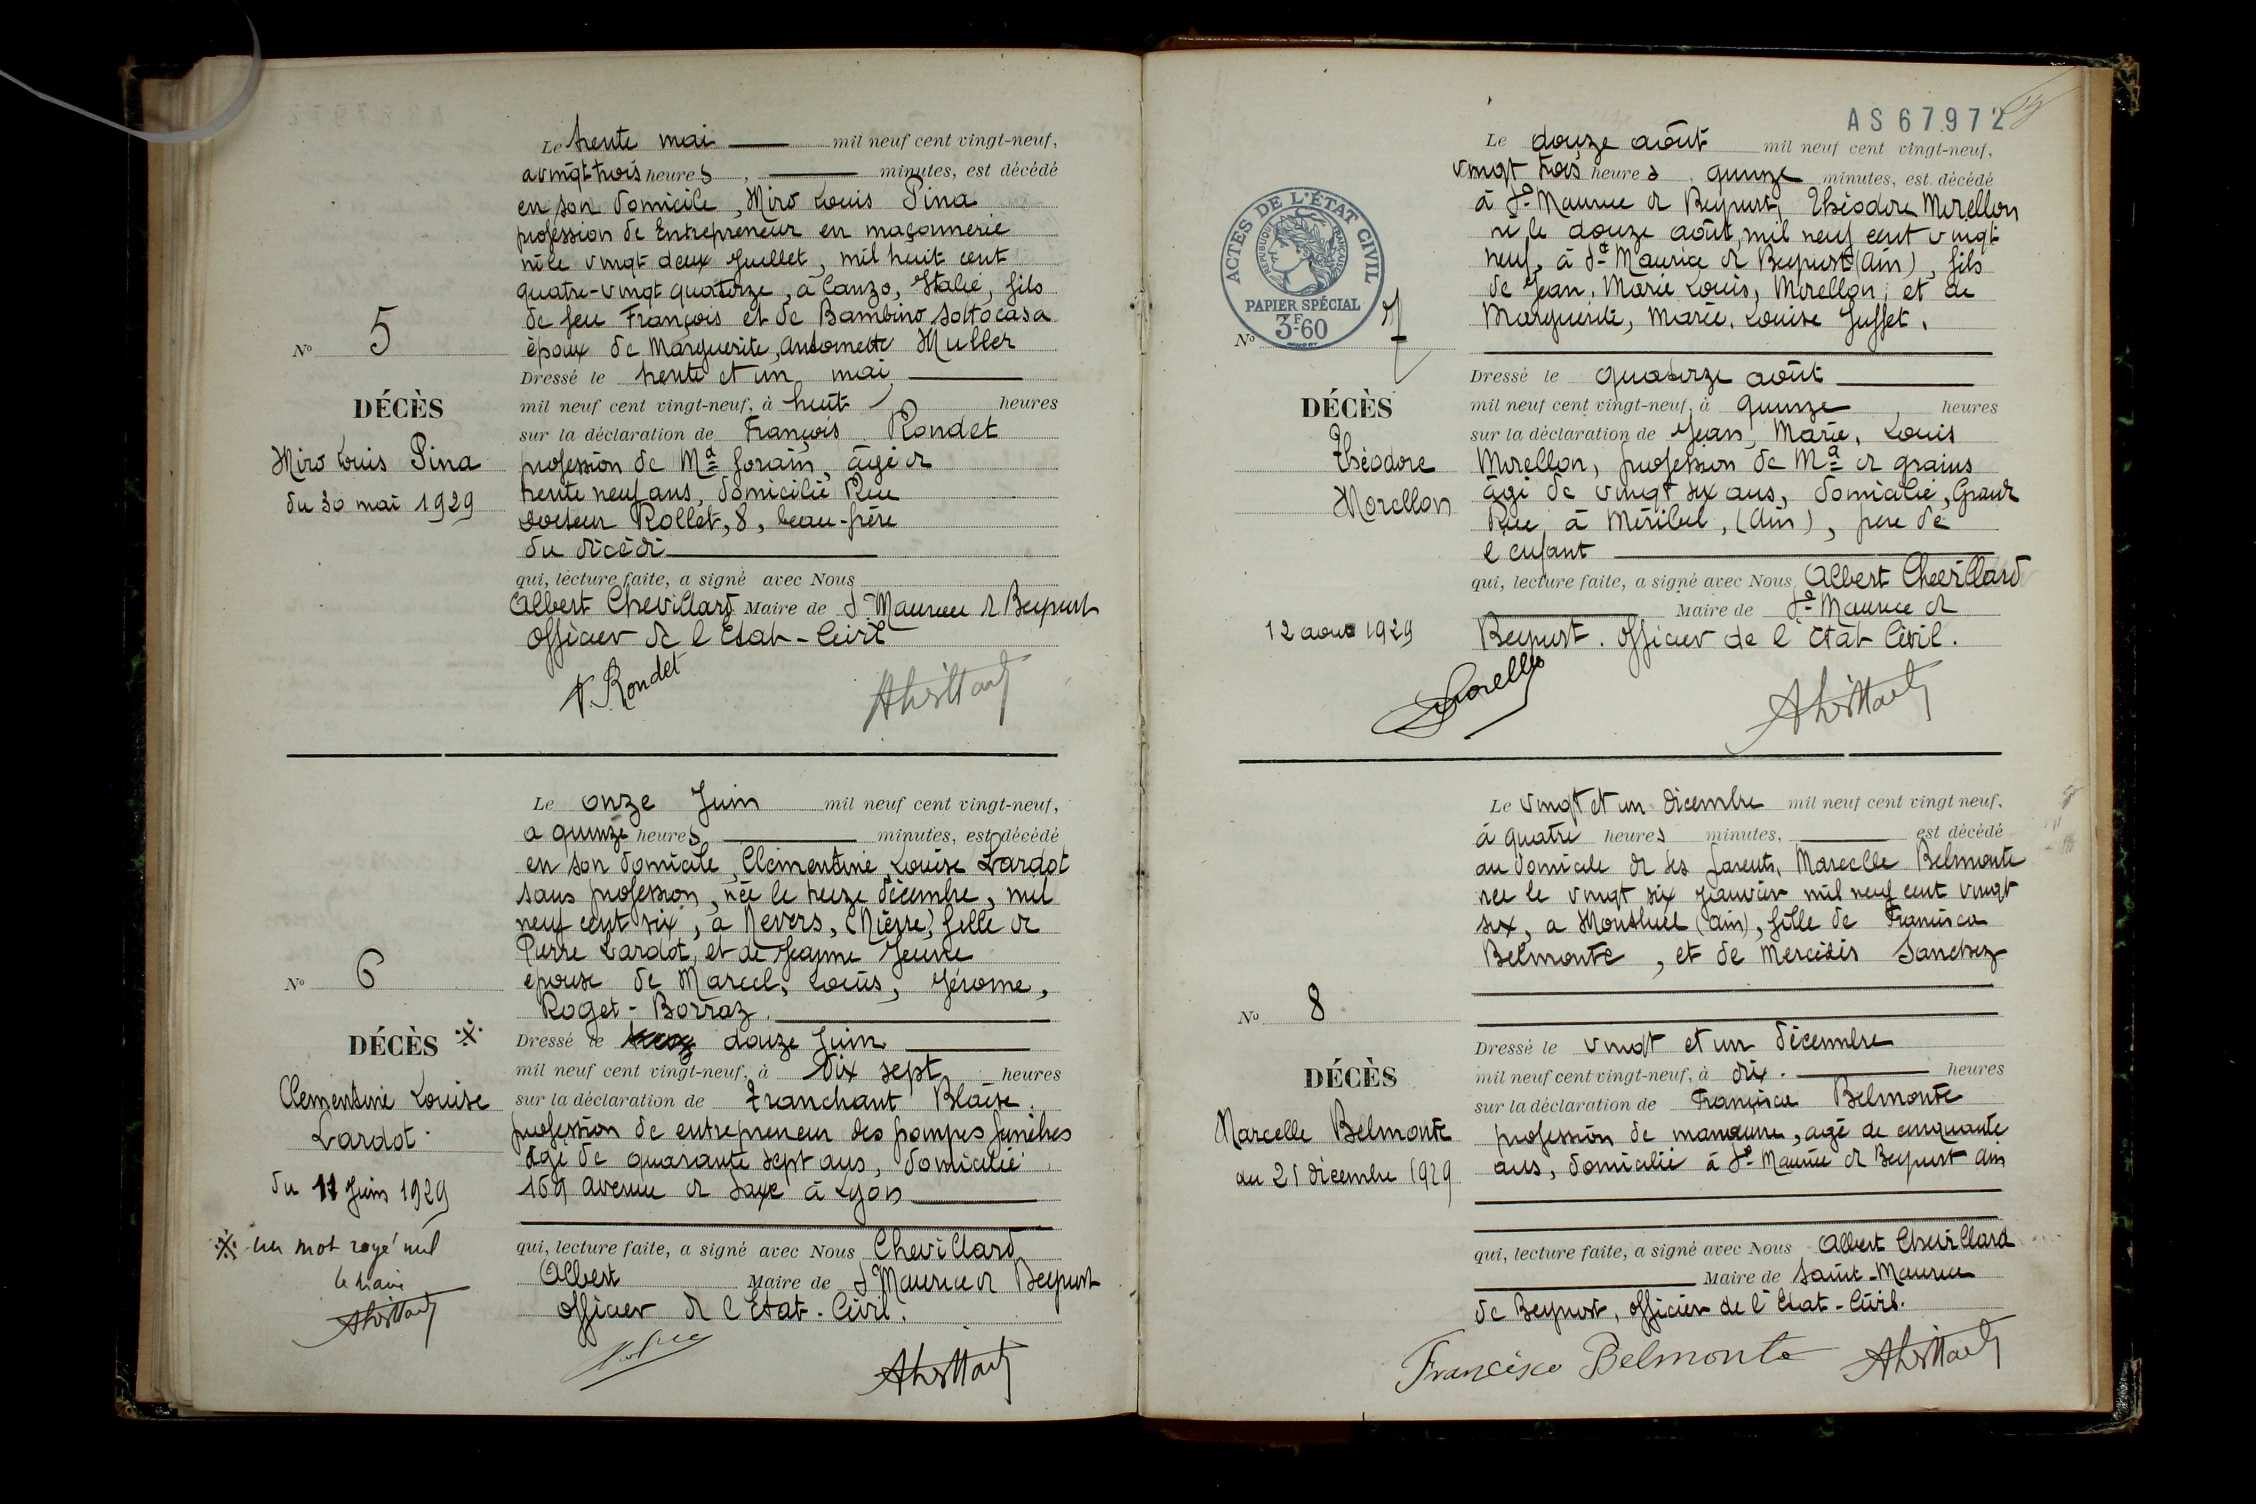 Le trente mai mil neuf cent vingt-neuf,
a vingt trois heures, minutes, est décédé
en son domicile, Miro Louis Pina
profession de Entrepreneur en maçonnerie
né le vingt deux Juillet, mil huit cent
quatre-vingt quatorze, à Canzo, Italie, fils
de feu François et de Bambino Soltocasa
époux de Marguerite, Antoinette Muller
No 5
DÉCÈS
Miro Louis Pina
du 30 mai 1929
Dressé le trente et un mai
mil neuf cent vingt-neuf, à huit heures
sur la déclaration de François Rondet
profession de Md forain, âgé de
trente neuf ans, domicilié Rue
Docteur Rollet, 8, beau-frère
du décédé
qui, lecture faite, a signé avec Nous
Albert Chevillard Maire de St Maurice de Beynost
Officier de l'Etat-Civil
F. Rondet
Le onze Juin mil neuf cent vingt-neuf,
a quinze heures minutes, est décédé
en son domicile, Clémentine, Louise Lardot
sans profession, née le treize décembre, mil
neuf cent six, à Nevers, (Nièvre), fille de
Pierre Lardot, et de Jeanne
épouse de Marcel, Louis, Jérome,
Roget-Borraz.
No 6
DÉCÈS ※
Clémentine Louise
Lardot.
du 11 Juin 1929
※ un mot rayé nul
le maire
Dressé le douze Juin
mil neuf cent vingt-neuf, à Dix sept heures
sur la déclaration de Tranchant Blaise.
profession de entrepreneur des pompes funèbres
âgé de quarante sept ans, domicilié
169 avenue de Saxe à Lyon
qui, lecture faite, a signé avec Nous Chevillard
Albert Maire de St Maurice de Beynost
officier de l'Etat-Civil.
AS 67.972
ACTES DE L'ÉTAT CIVIL
RÉPUBLIQUE FRANÇAISE
PAPIER SPÉCIAL
3F.60
Le douze août mil neuf cent vingt-neuf,
vingt trois heures quinze minutes, est décédé
à St Maurice de Beynost, Théodore Morellon
né le douze août, mil neuf cent vingt
neuf, à St Maurice de Beynost (Ain), fils
de Jean, Marie Louis, Morellon, et de
Marguerite, Marie, Louise Juffet.
No 7
DÉCÈS
Théodore
Morellon
12 aout 1929
Dressé le quatorze août
mil neuf cent vingt-neuf, à quinze, heures
sur la déclaration de Jean, Marie, Louis
Morellon, profession de Md de grains
âgé de vingt six ans, domicilié, Grande
Rue, à Miribel, (Ain), père de
l'enfant
qui, lecture faite, a signé avec Nous Albert Chevillard
Maire de St Maurice de
Beynost. Officier de l'Etat Civil.
Morellon
Le vingt et un décembre mil neuf cent vingt neuf,
à quatre heures minutes, est décédé
au domicile de ses parents, Marcelle Belmonte
née le vingt six Janvier mil neuf cent vingt
six, a Montluel (Ain), fille de Francisco
Belmonte, et de Mercédès Sanchez
No 8
DÉCÈS
Marcelle Belmonte
du 21 décembre 1929
Dressé le vingt et un décembre
mil neuf cent vingt-neuf, à dix. heures
sur la déclaration de Francisco Belmonte
profession de manœuvre, âgé de cinquante
ans, domicilié à St Maurice de Beynost Ain
qui, lecture faite, a signé avec Nous Albert Chevillard
Maire de Saint-Maurice
de Beynost, officier de l'Etat-Civil.
Francisco Belmonte